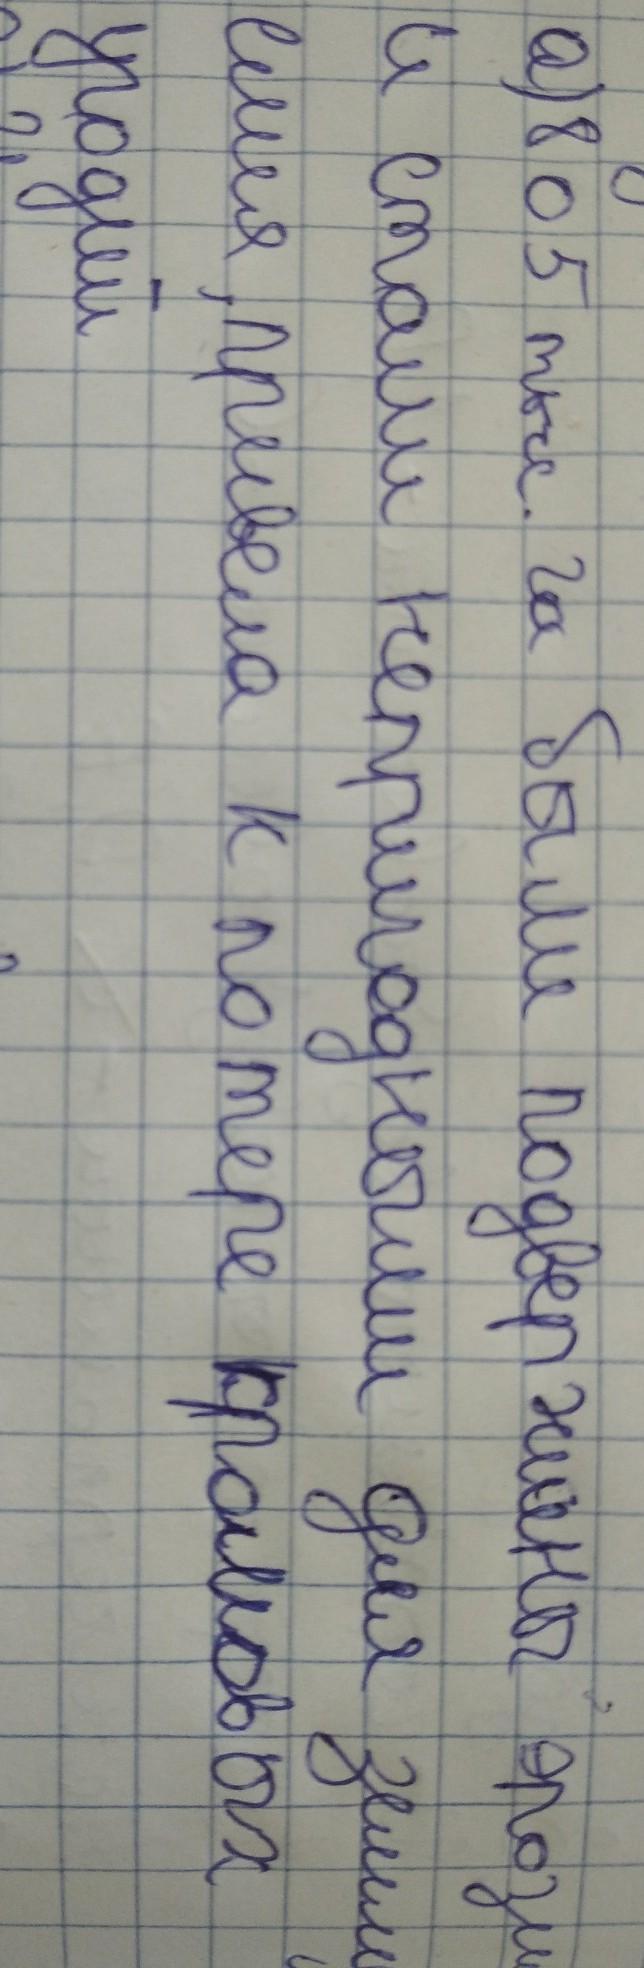 а) 805 тыс. га были подвержены эрози
и стали непригодными для земле
смия, привела к потере краиловых
угодий